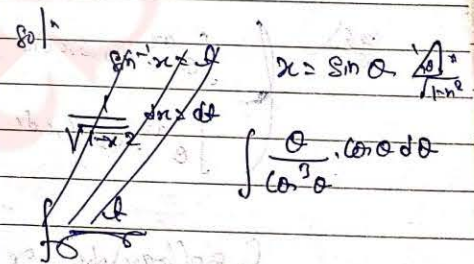 Solⁿ
sin⁻¹x = t
1/√(1-x²) dx = dt
∫ t
x = sin θ
1 x θ √(1-x²)
∫ θ/cos³θ . cos θ dθ